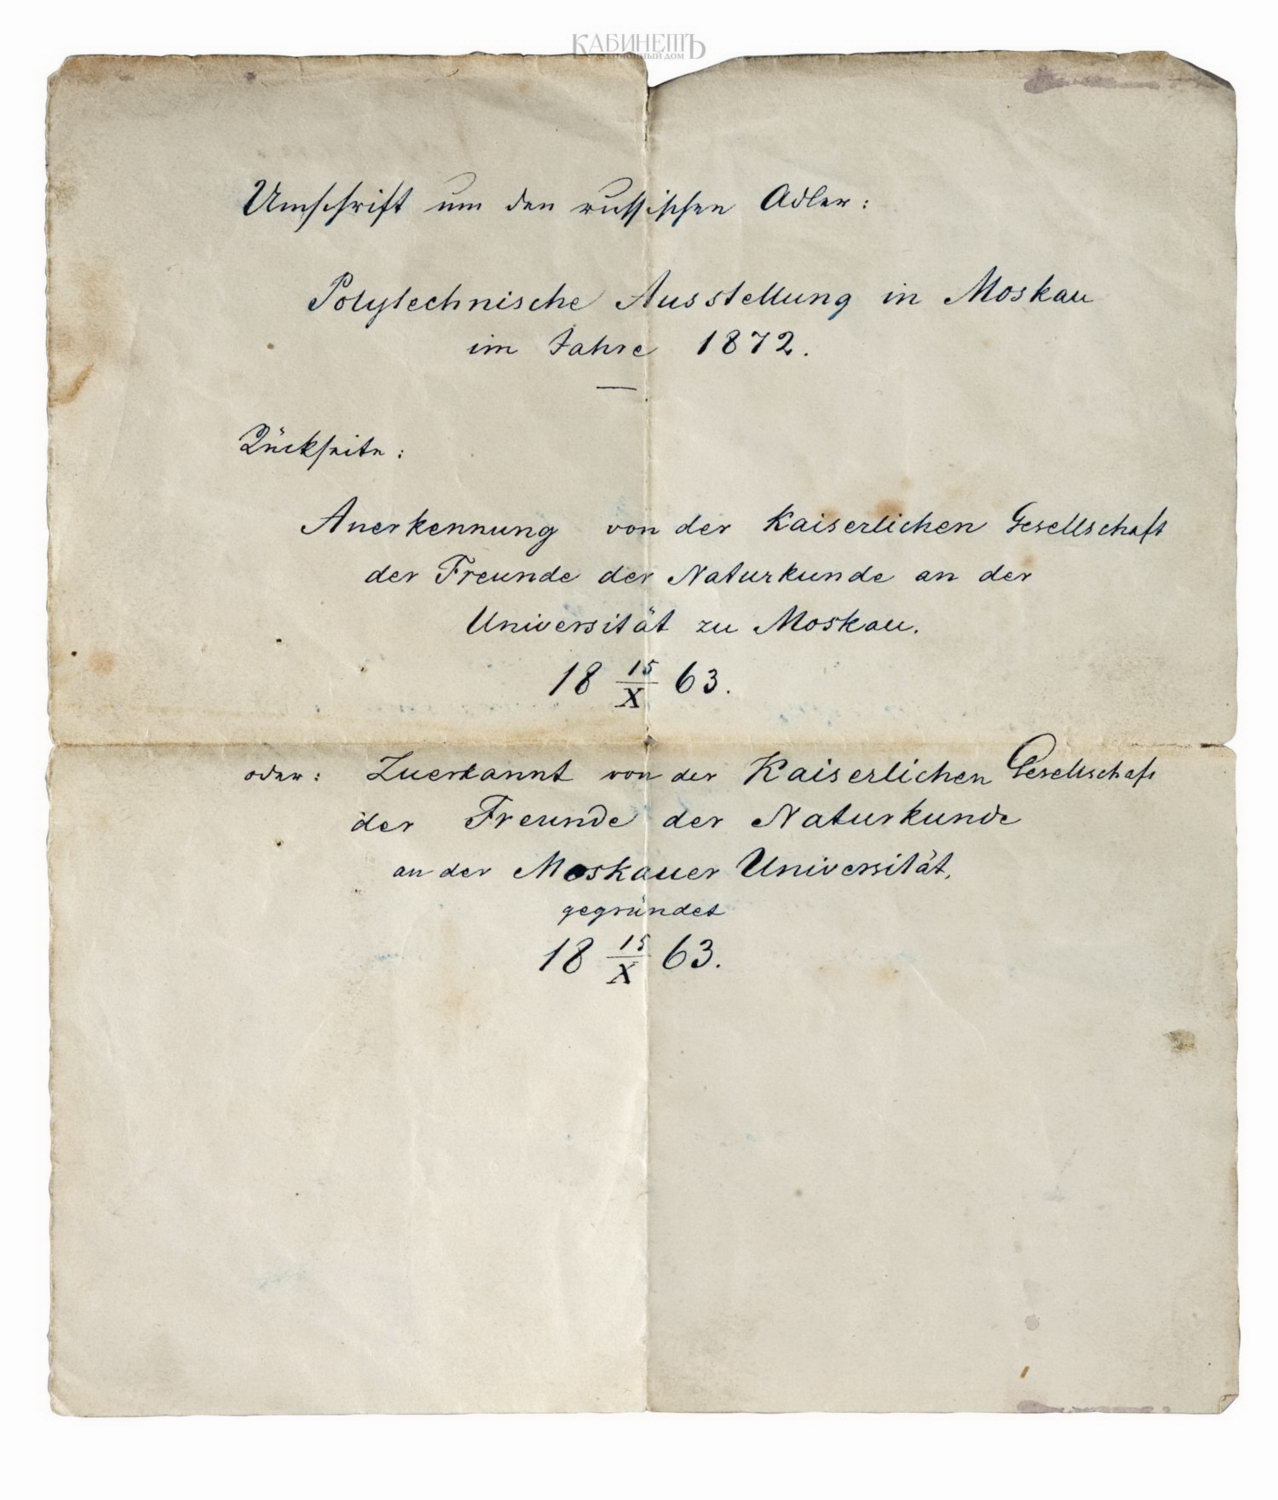 КАБИНЕТЪ
Umschrift um den russischen Adler:
Polytechnische Ausstellung in Moskau
im Jahre 1872.
Rückseite:
Anerkennung von der Kaiserlichen Gesellschaft
der Freunde der Naturkunde an der
Universität zu Moskau.
18 15/X 63.
oder: Zuerkannt von der Kaiserlichen Gesellschaft
der Freunde der Naturkunde
an der Moskauer Universität,
gegründet
18 15/X 63.